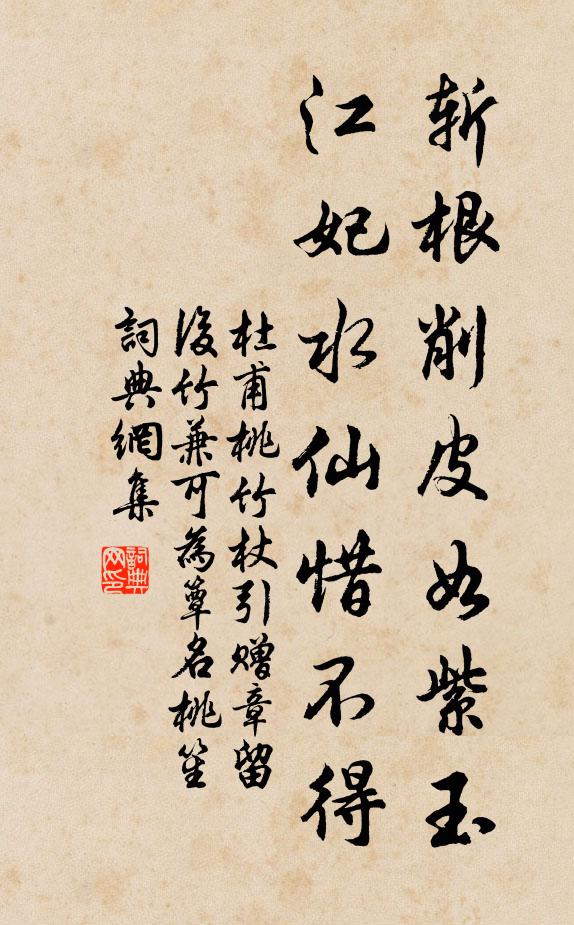 斬根削皮如紫玉
江妃水仙惜不得
杜甫桃竹杖引贈章留
後竹兼可為簟名桃笙
詞典網集
詞典网印